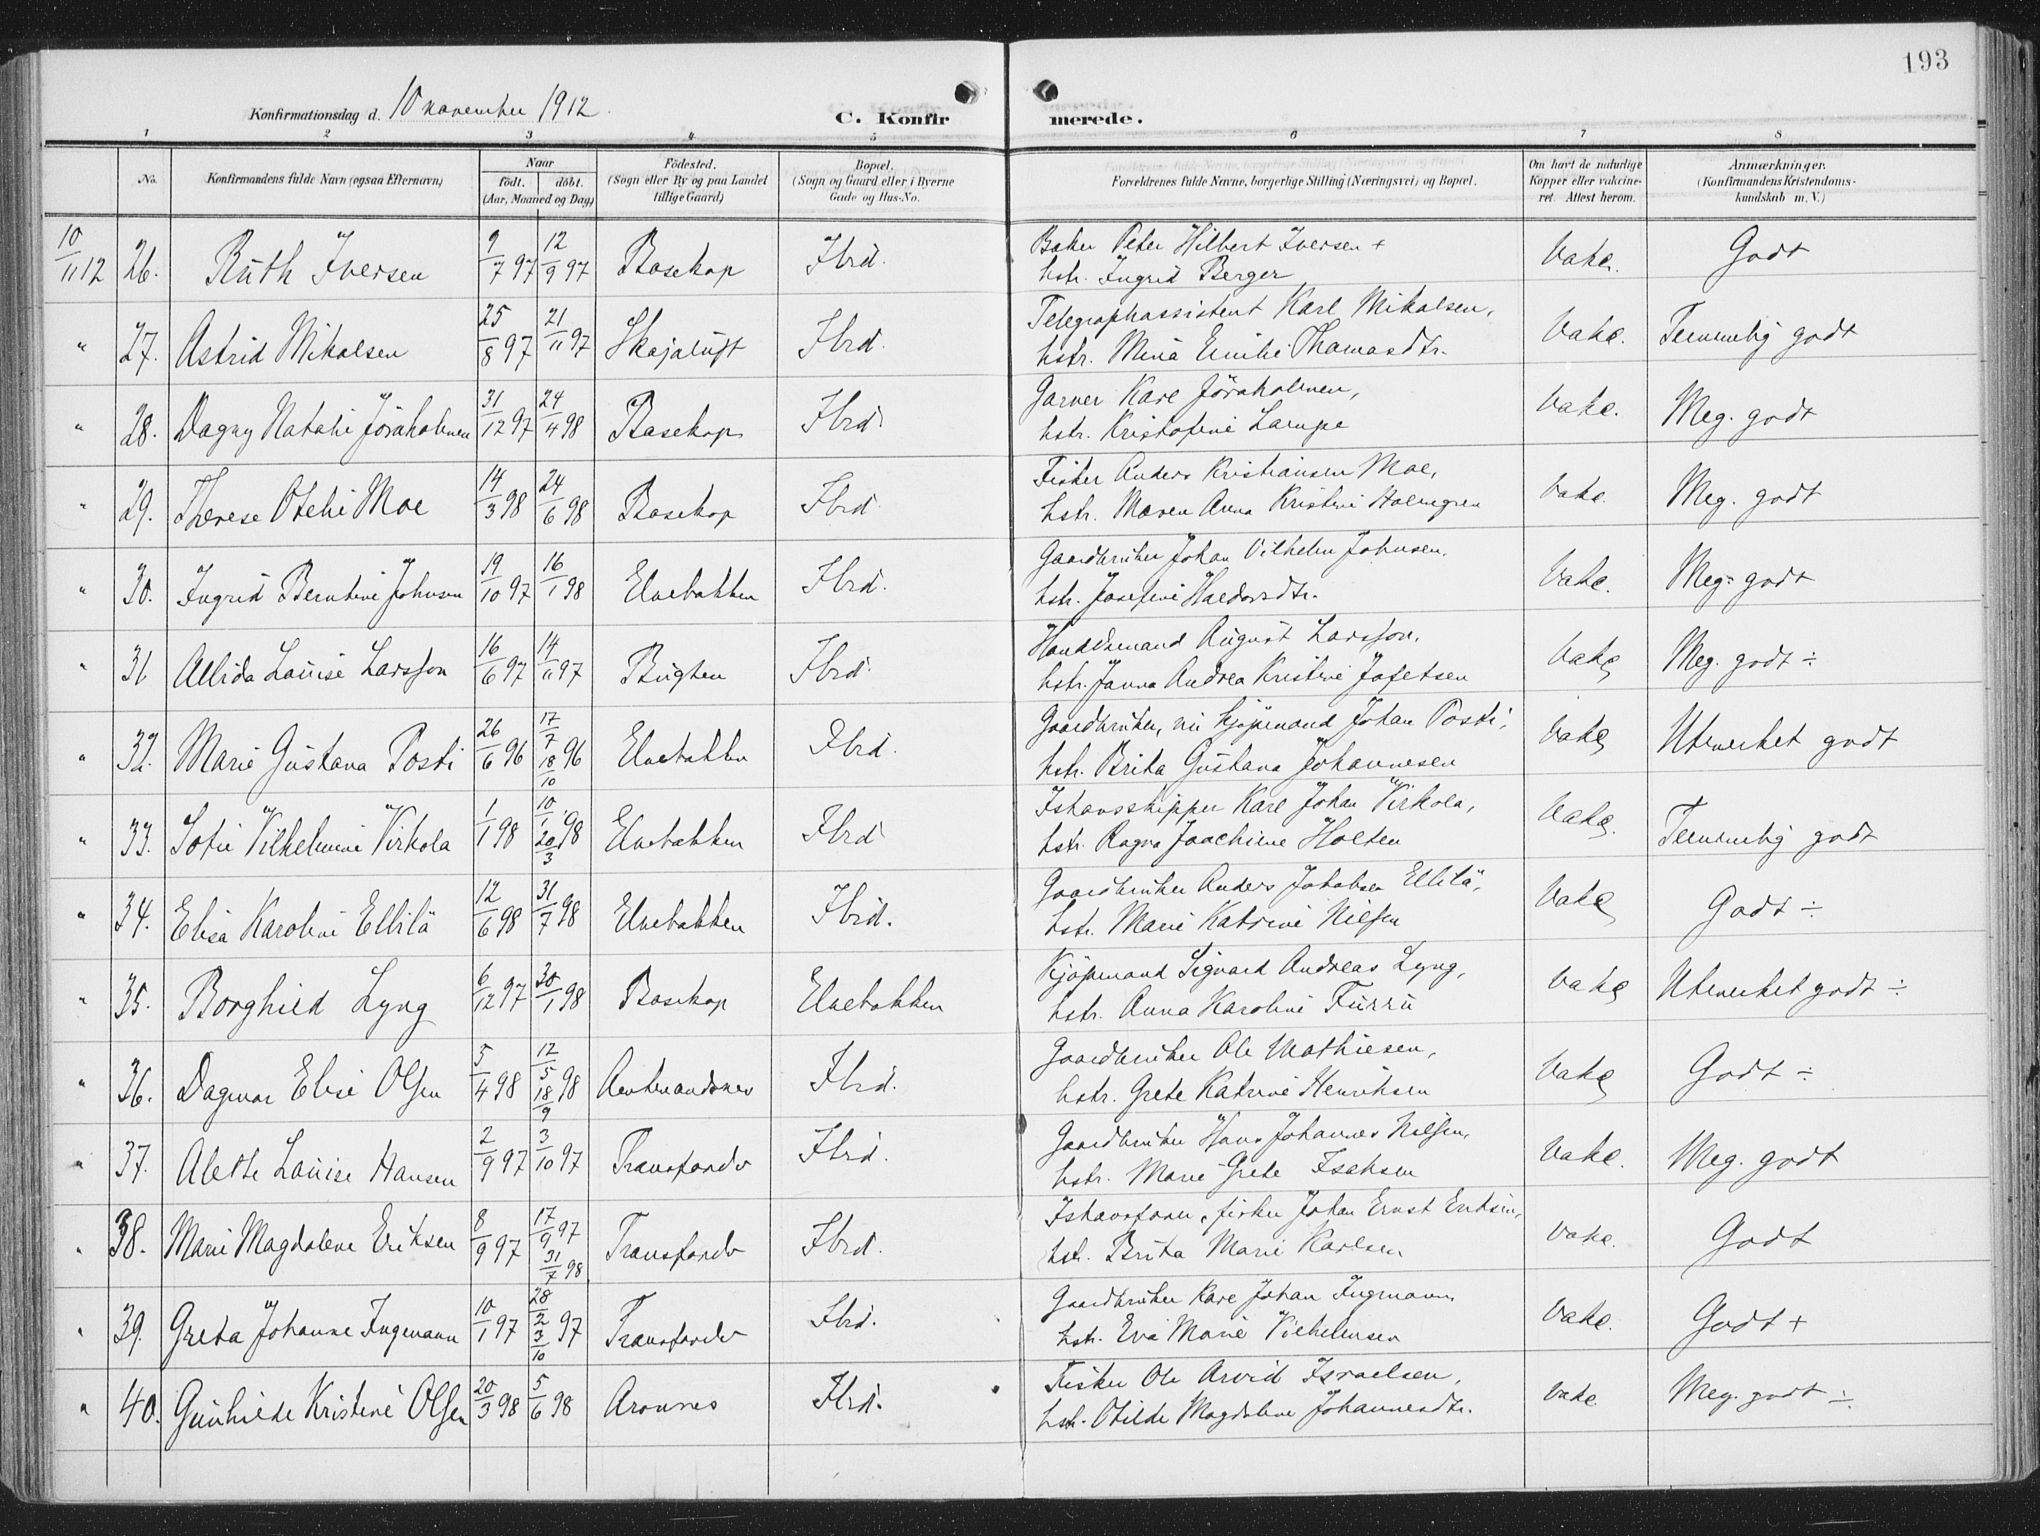 193
Konfirmationsdag d. 10 november 1912.
C. Konfirmerede.
1 2 3 4 5 6 7 8
No. Konfirmandens fulde Navn (ogsaa Efternavn) Naar født. døbt. (Aar, Maaned og Dag) Fødested. (Sogn eller By og paa Landet tillige Gaard) Bopæl. (Sogn og Gaard eller i Byerne Gade og Hus-No. Forældrenes fulde Navne, borgerlige Stilling (Næringsvei) og Bopæl. Om havt de naturlige Kopper eller vaccineret. Attest herom. Anmærkninger. (Konfirmandens Kristendomskundskab m. V.)
10/11 12 26. Ruth Iversen 9/7 97 12/9 97 Bosekop Ibid. Baker Peter Hilbert Iversen + Vakc. Godt
hstr. Ingrid Berger
" 27. Astrid Mikalsen 25/8 97 21/11 97 Skajaluft Ibid. Telegrafassistent Karl Mikalsen, Vakc. Temmelig godt
hstr. Mina Emilie Thomasdtr.
" 28. Dagny Natalie Jöraholmen 31/12 97 24/4 98 Bosekop Ibid Garver Karl Jöraholmen, Vakc. Meg. godt
hstr. Kristofine Lampe
" 29. Therese Otelie Moe 14/3 98 24/6 98 Bosekop Ibid Fisker Anders Kristiansen Moe, Vakc. Meg. godt
hstr. Maren Anna Kristine Holmgren
" 30. Ingrid Berntine Johnsen 19/10 97 16/1 98 Elvebakken Ibid. Gaardbruker Johan Vilhelm Johnsen, Vakc. Meg. godt
hstr. Josefine Haldorsdtr.
" 31 Allida Louise Larsson 16/6 97 14/11 97 Bugten Ibid. Handelsmand August Larsson, Vakc Meg. godt ÷
hstr. Janna Andrea Kristine Jofetsen
" 32. Marie Gustava Posti 26/6 96 17/7 18/10 96 Elvebakken Ibid. Gaardbruker, nu kjøpmand Johan Posti, Vakc Utmerket godt
hstr. Brita Gustava Johannesen
" 33. Sofie Vilhelmine Virkola 1/1 98 10/1 20/3 98 Elvebakken Ibid Ishavsskipper Karl Johan Virkola, Vakc. Temmelig godt
hstr. Ragna Joachime Holten
" 34. Elisa Karoline Ellilä 12/6 98 31/7 98 Elvebakken Ibid. Gaardbruker Anders Jakobsen Ellilä, Vakc Godt ÷
hstr. Marie Katrine Nilsen
" 35. Borghild Lyng 6/12 97 30/1 98 Bosekop Elvebakken Kjøpmand Sigvard Andreas Lyng, Vakc Utmerket godt ÷
hstr. Anna Karoline Furru
" 36. Dagmar Elise Olsen 5/4 98 12/5 18/9 98 Amtmandsnes Ibid. Gaardbruker Ole Mathiesen, Vakc Godt ÷
hstr. Grete Katrine Henriksen
" 37. Alette Louise Hansen 2/9 97 3/10 97 Transfarelv Ibid. Gaardbruker Hans Johannes Nilsen, Vakc. Meg. godt
hstr. Marie Grete Isaksen
" 38. Marie Magdalene Eriksen 8/9 97 17/9 97 31/7 98 Transfarelv Ibid. Ishavsfarer, fisker Johan Ernst Eriksen, Vakc. Godt
hstr. Brita Marie Karlsen
" 39. Greta Johanne Ingmann 10/1 97 28/2 3/10 97 Transfarelv Ibid. Gaardbruker Karl Johan Ingmann, Vakc. Godt +
hstr. Eva Marie Vilhelmsen
" 40. Gunhilde Kristine Olsen 20/3 98 5/6 98 Aronnes Ibid. Fisker Ole Arvid Israelsen, Vakc. Meg. godt ÷
hstr. Otilde Magdalene Johannesdtr.